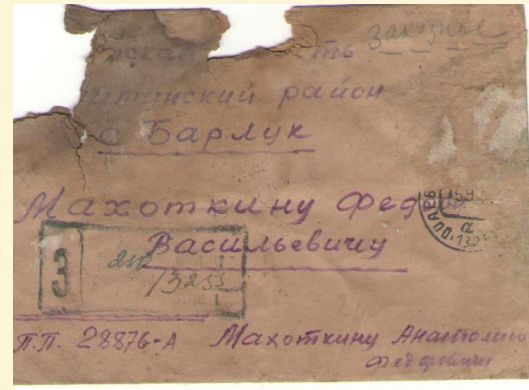 заказное
ская ть
йтинский район
с Барлук
Махоткину Фед
Васильевичу
З
3255
п.п. 28876-А Махоткину Анатолию
Федоровичу